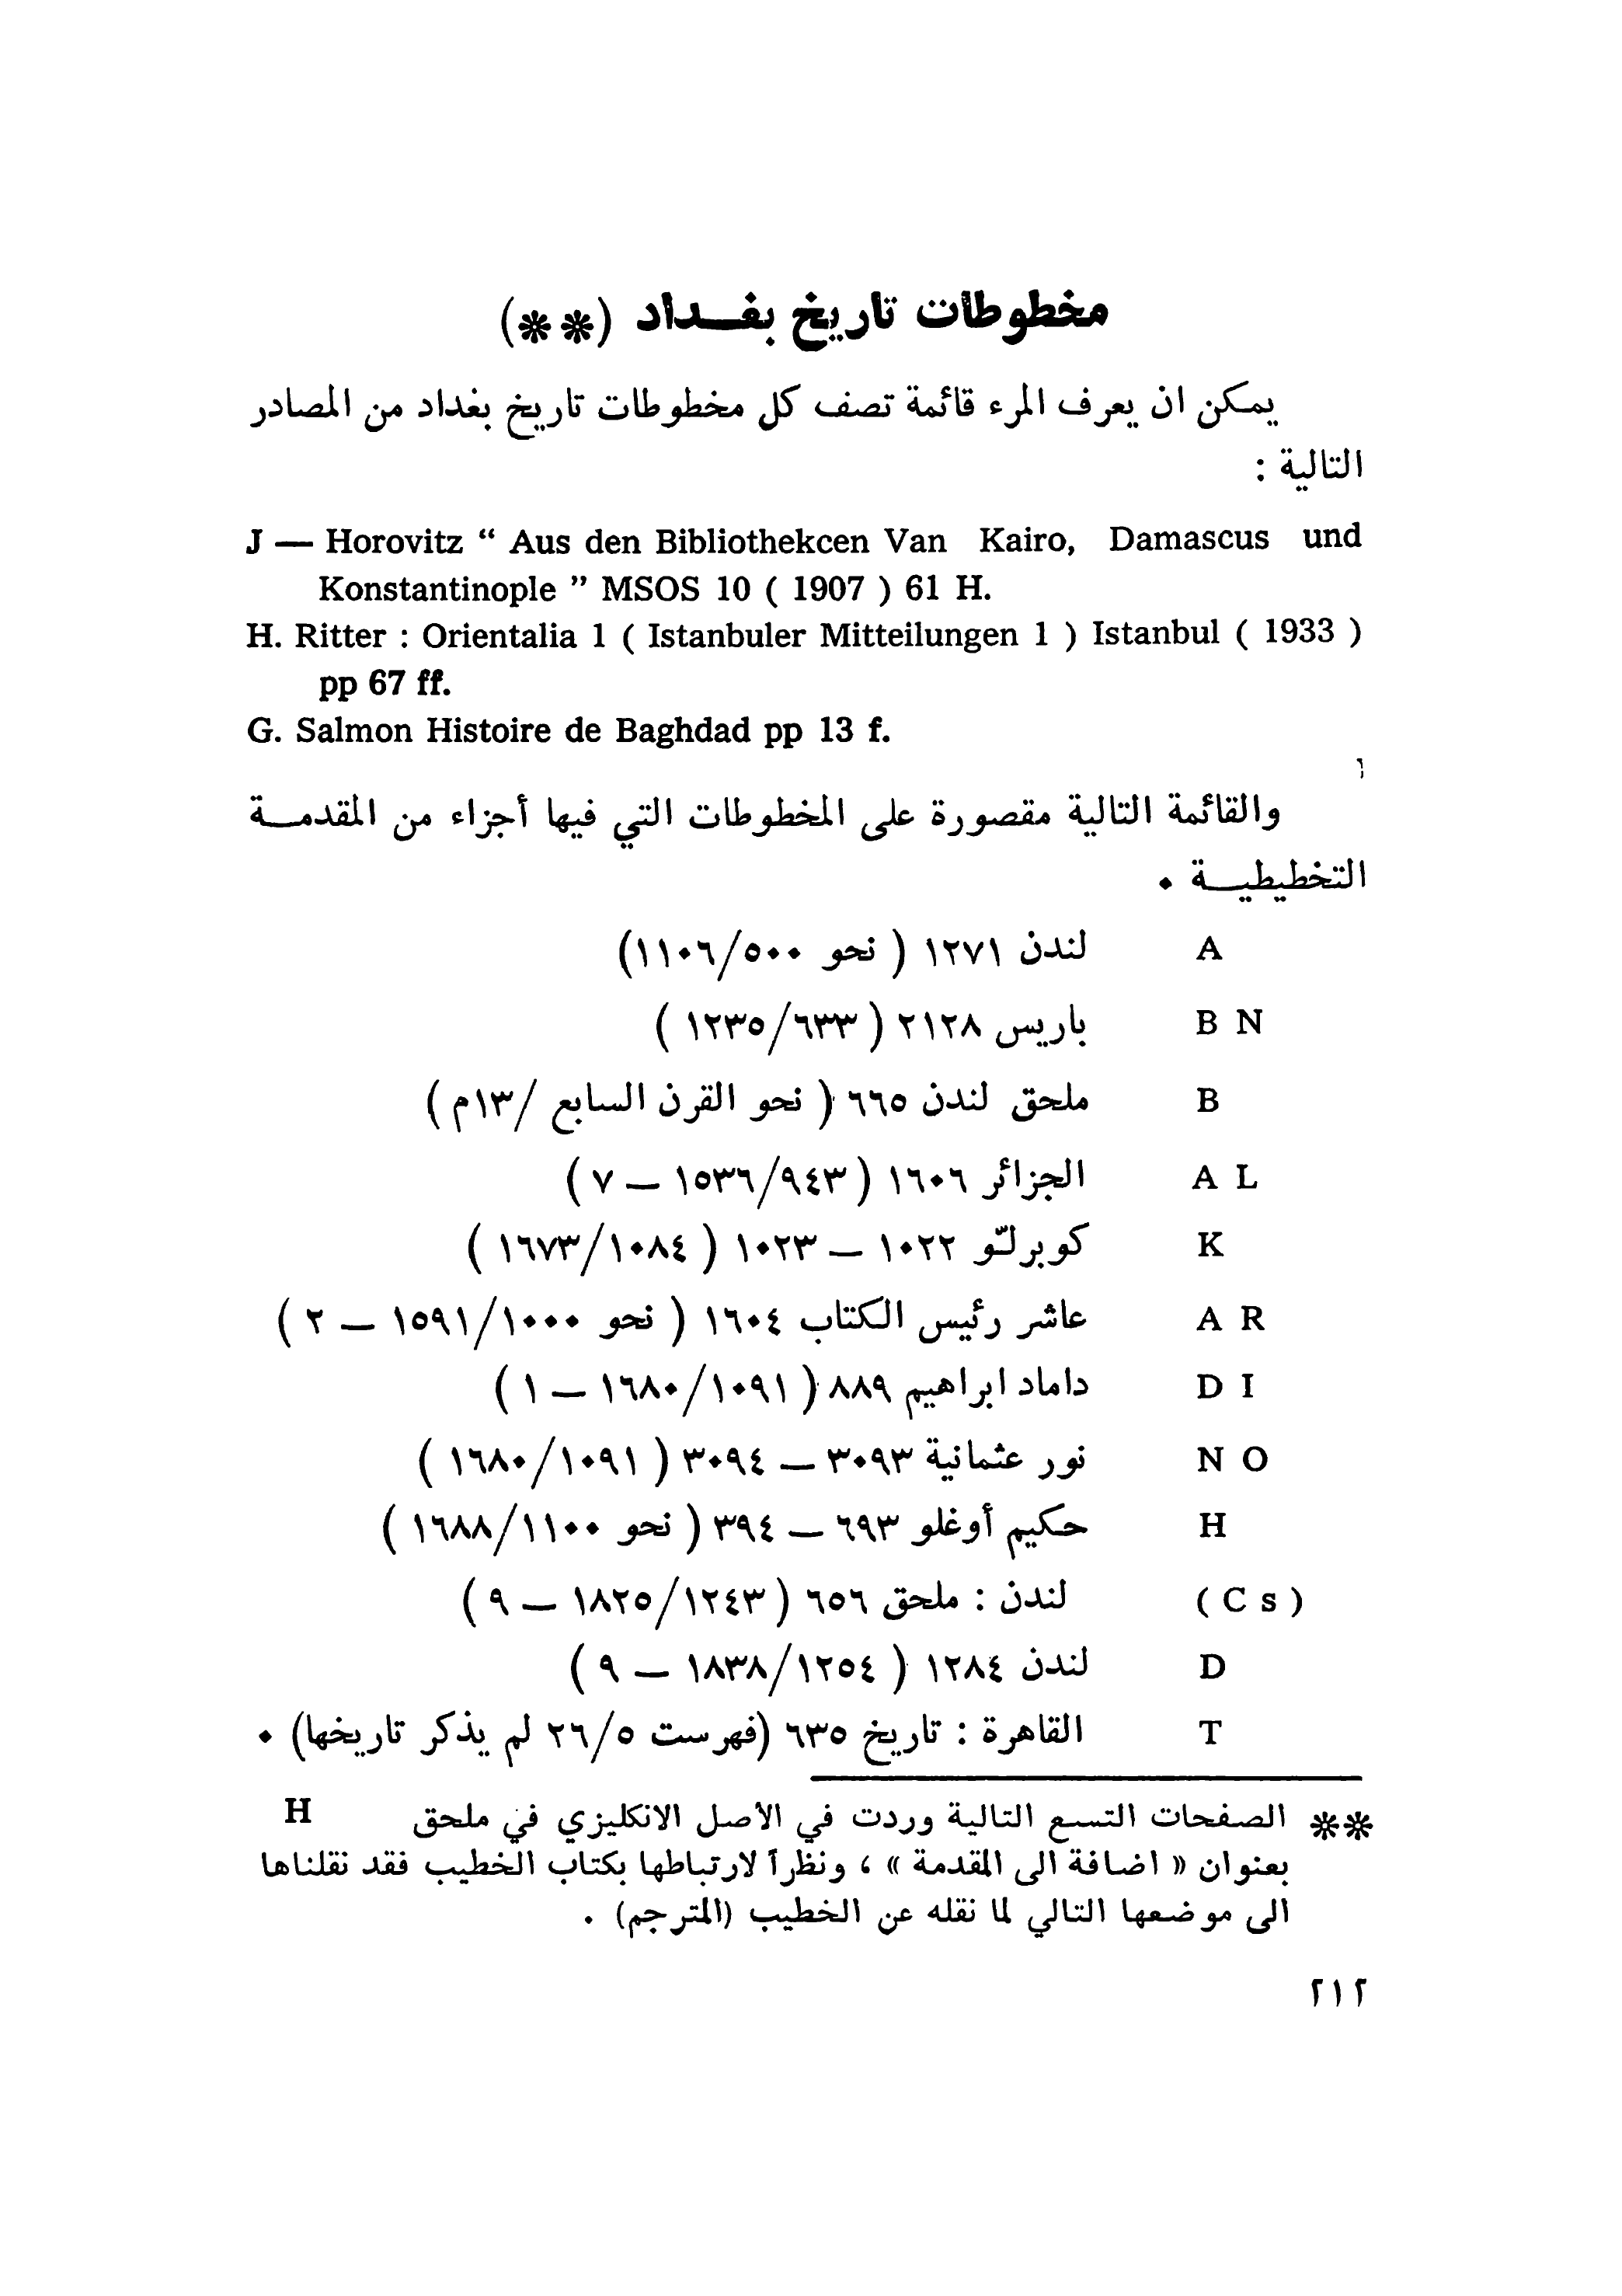 مخطوطات تاريخ بغـــداد (**)
يمكن ان يعرف المرء قائمة تصف كل مخطوطات تاريخ بغداد من المصادر
التالية :
J — Horovitz “ Aus den Bibliothekcen Van Kairo, Damascus und
Konstantinople ” MSOS 10 ( 1907 ) 61 H.
H. Ritter : Orientalia 1 ( Istanbuler Mitteilungen 1 ) Istanbul ( 1933 )
pp 67 ff.
G. Salmon Histoire de Baghdad pp 13 f.
والقائمة التالية مقصورة على المخطوطات التي فيها أجزاء من المقدمـــة
التخطيطيـــة ٠
A لندن ١٢٧١ ( نحو ١١٠٦/٥٠٠)
B N باريس ٢١٢٨ ( ١٢٣٥/٦٣٣ )
B ملحق لندن ٦٦٥ ( نحو القرن السابع /١٣م )
A L الجزائر ١٦٠٦ ( ١٥٣٦/٩٤٣ — ٧ )
K كوبرلّو ١٠٢٢ — ١٠٢٣ ( ١٦٧٣/١٠٨٤ )
A R عاشر رئيس الكتاب ١٦٠٤ ( نحو ١٥٩١/١٠٠٠ — ٢ )
D I داماد ابراهيم ٨٨٩ ( ١٦٨٠/١٠٩١ — ١ )
N O نور عثمانية ٣٠٩٣ — ٣٠٩٤ ( ١٦٨٠/١٠٩١ )
H حكيم أوغلو ٦٩٣ — ٣٩٤ ( نحو ١٦٨٨/١١٠٠ )
( C s ) لندن : ملحق ٦٥٦ ( ١٨٢٥/١٢٤٣ — ٩ )
D لندن ١٢٨٤ ( ١٨٣٨/١٢٥٤ — ٩ )
T القاهرة : تاريخ ٦٣٥ (فهرست ٢٦/٥ لم يذكر تاريخها) ٠
** الصفحات التسع التالية وردت في الاصل الانكليزي في ملحق H
بعنوان « اضافة الى المقدمة » ، ونظراً لارتباطها بكتاب الخطيب فقد نقلناها
الى موضعها التالي لما نقله عن الخطيب (المترجم) .
٢١٢